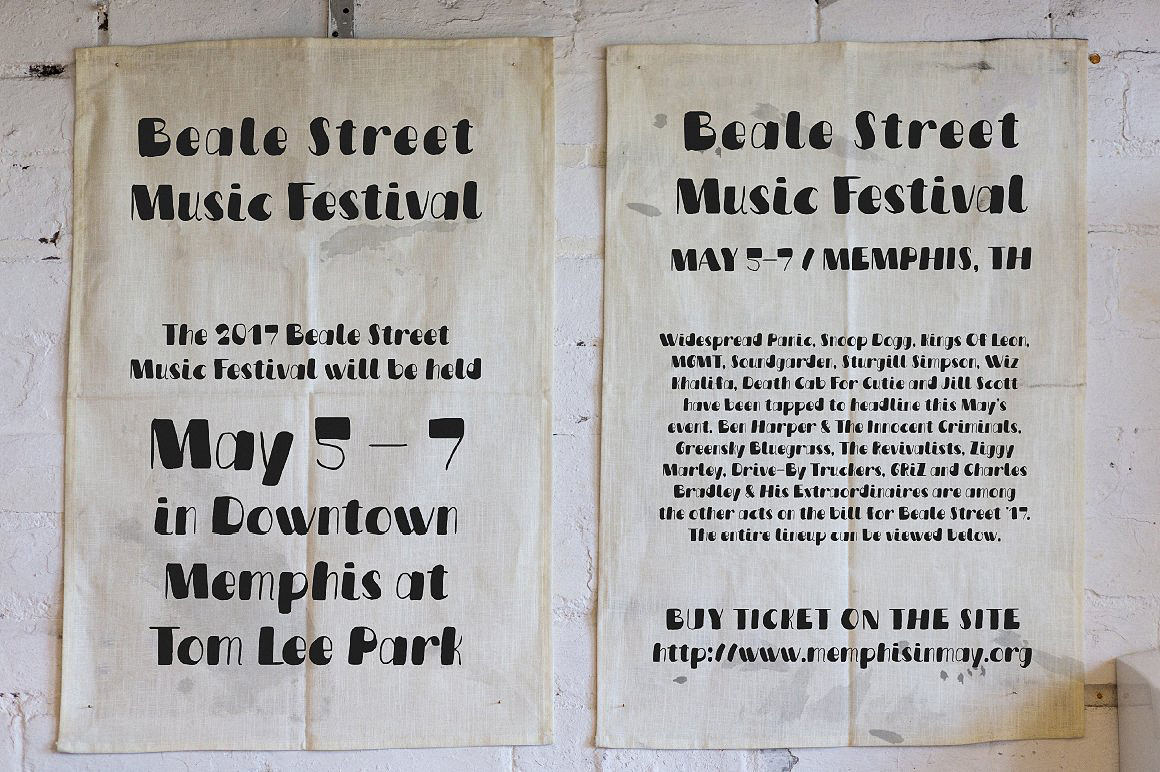 Beale Street
Music Festival
The 2017 Beale Street
Music Festival will be held
May 5 – 7
in Downtown
Memphis at
Tom Lee Park
Beale Street
Music Festival
MAY 5–7 / MEMPHIS, TH
Widespread Panic, Snoop Dogg, Kings Of Leon,
MGMT, Soundgarden, Sturgill Simpson, Wiz
Khalifa, Death Cab For Cutie and Jill Scott
have been tapped to headline this May's
event. Ben Harper & The Innocent Criminals,
Greensky Bluegrass, The Revivalists, Ziggy
Marley, Drive-By Truckers, GRiZ and Charles
Bradley & His Extraordinaires are among
the other acts on the bill for Beale Street '17.
The entire lineup can be viewed below.
BUY TICKET ON THE SITE
http://www.memphisinmay.org